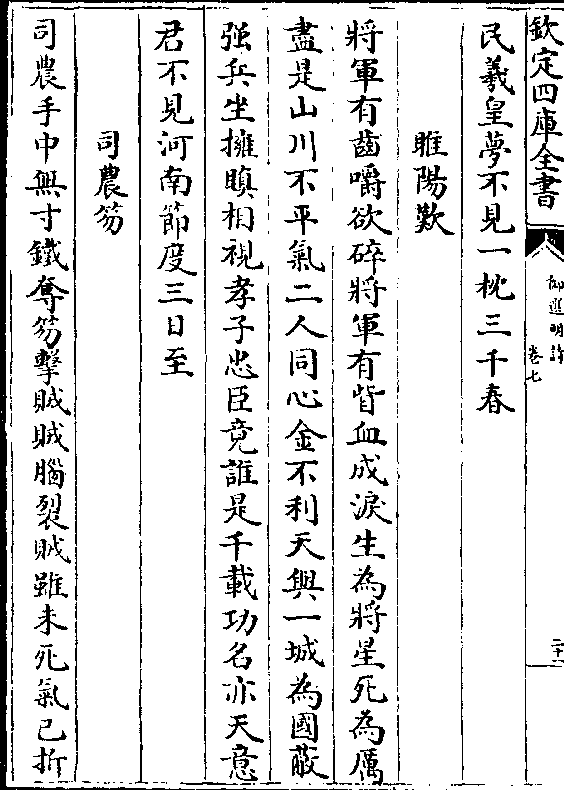 欽定四庫全書
御選明詩
卷七
二十一
民羲皇夢不見一枕三千春
睢陽歎
將軍有齒嚼欲碎將軍有眥血成淚生為將星死為厲
盡是山川不平氣二人同心金不利天與一城為國蔽
强兵坐擁瞋相視孝子忠臣竟誰是千載功名亦天意
君不見河南節度三日至
司農笏
司農手中無寸鐵奪笏擊賊賊腦裂賊雖未死氣已折